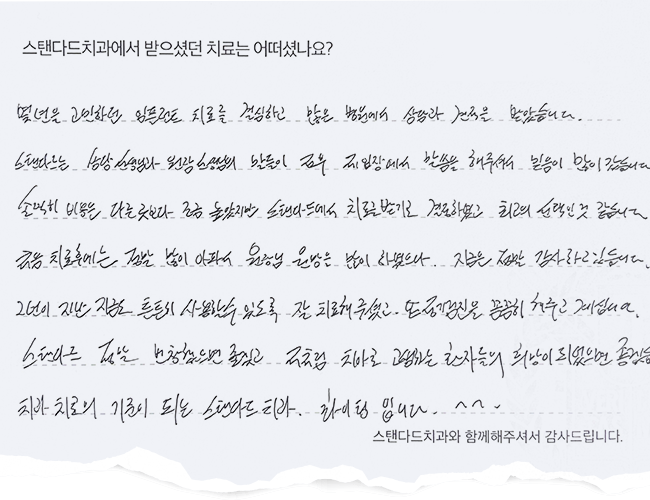 스탠다드치과에서 받으셨던 치료는 어떠셨나요?
몇년을 고민하던 임플란트 치료를 결심하고 많은 병원에서 상담과 견적을 받았습니다.
스탠다드는 상담선생님과 원장선생님의 말들이 모두 제입장에서 말씀을 해주셔서 믿음이 많이 갔습니다
솔직히 비용은 다른곳보다 조금 높았지만 스탠다드에서 치료를받기로 결정하였고 최고의 선택인것 같습니다.
처음 치료후에는 정말 많이 아파서 원장님 원망은 많이 하였으나. 지금은 정말 감사하고있습니다.
2년이 지난 지금도 튼튼히 사용할수 있도록 잘 치료해주셨고. 또 정기검진을 꼼꼼히 해주고 계십니다.
스탠다드 정말 번창했으면 좋겠고 저처럼 치아로 고생하는 환자들의 희망이 되었으면 좋겠습
치과 치료의 기준이 되는 스탠다드 치과. 화이팅 입니다. ^^.
스탠다드치과와 함께해주셔서 감사드립니다.